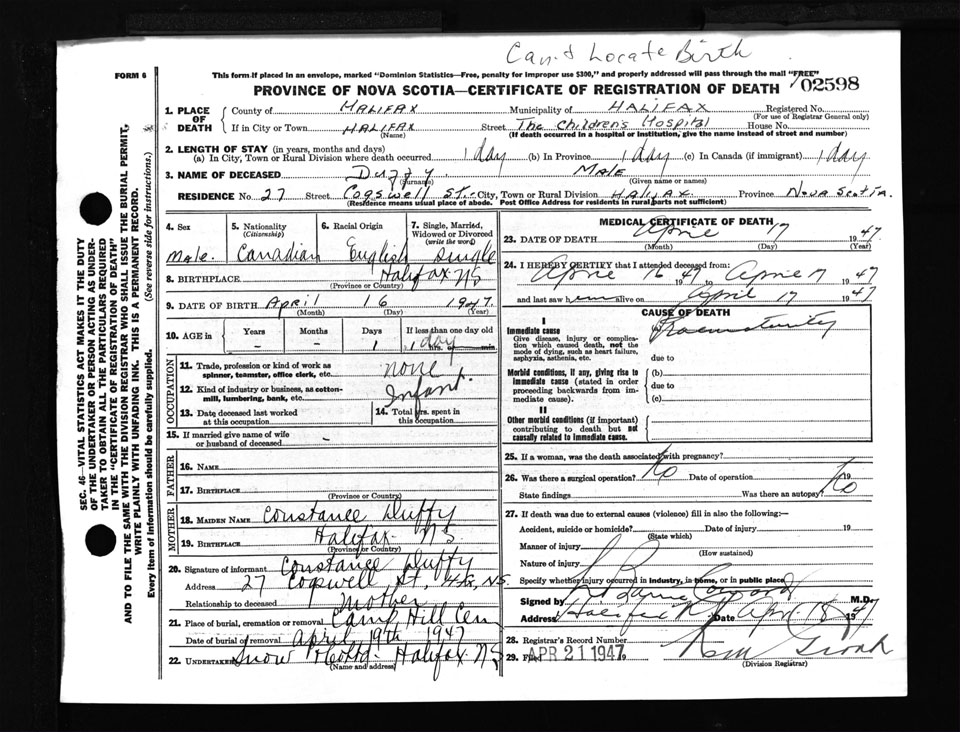 Can't Locate Birth
FORM 6
This form if placed in an envelope, marked "Dominion Statistics—Free, penalty for improper use $300," and properly addressed will pass through the mail "FREE"
PROVINCE OF NOVA SCOTIA—CERTIFICATE OF REGISTRATION OF DEATH
02598
1. PLACE OF DEATH
County of HALIFAX Municipality of HALIFAX Registered No.
(For use of Registrar General only)
If in City or Town HALIFAX Street The Children's Hospital House No.
(Name) (If death occurred in a hospital or institution, give the name instead of street and number)
2. LENGTH OF STAY (in years, months and days)
(a) In City, Town or Rural Division where death occurred 1 day (b) In Province 1 day (c) In Canada (if immigrant) 1 day
3. NAME OF DECEASED Duffy Male
(Surname) (Given name or names)
RESIDENCE No. 27 Street Cogswell St. City, Town or Rural Division Halifax Province Nova Scotia
(Residence means usual place of abode. Post Office Address for residents in rural parts not sufficient)
4. Sex
Male.
5. Nationality
(Citizenship)
Canadian
6. Racial Origin
English
7. Single, Married, Widowed or Divorced
(write the word)
Single
8. BIRTHPLACE Halifax NS
(Province or Country)
9. DATE OF BIRTH April 16 1947.
(Month) (Day) (Year)
10. AGE in
Years Months Days If less than one day old
- - 1 1 day hrs. or min.
OCCUPATION
11. Trade, profession or kind of work as spinner, teamster, office clerk, etc. none
12. Kind of industry or business, as cotton-mill, lumbering, bank, etc. Infant.
13. Date deceased last worked at this occupation
14. Total yrs. spent in this occupation
15. If married give name of wife or husband of deceased -
FATHER
16. NAME
17. BIRTHPLACE
(Province or Country)
MOTHER
18. MAIDEN NAME Constance Duffy
19. BIRTHPLACE Halifax NS
(Province or Country)
20. Signature of informant Constance Duffy
Address 27 Cogswell St, Hfx, NS.
Relationship to deceased Mother
21. Place of burial, cremation or removal Camp Hill Cem
Date of burial or removal April 19th 1947
22. Undertaker Snow & Co Ltd Halifax NS
(Name and address)
MEDICAL CERTIFICATE OF DEATH
23. DATE OF DEATH April 17 1947
(Month) (Day) (Year)
24. I HEREBY CERTIFY that I attended deceased from:
April 16 1947 to April 17 1947
and last saw him alive on April 17 1947
CAUSE OF DEATH
I
Immediate cause
Give disease, injury or complication which caused death, not the mode of dying, such as heart failure, asphyxia, asthenia, etc.
(a) Praematurity
due to
Morbid conditions, if any, giving rise to immediate cause (stated in order proceeding backwards from immediate cause).
(b)
due to
(c)
II
Other morbid conditions (if important) contributing to death but not causally related to immediate cause.
25. If a woman, was the death associated with pregnancy?
26. Was there a surgical operation? No Date of operation 19
State findings Was there an autopsy? No
27. If death was due to external causes (violence) fill in also the following:—
Accident, suicide or homicide? Date of injury 19
(State which)
Manner of injury
(How sustained)
Nature of injury
Specify whether injury occurred in industry, in home, or in public place
Signed by M.D.
Address Halifax N.S. Date Apr. 18 1947
28. Registrar's Record Number
29. Filed APR 21 1947.
(Division Registrar)
SEC. 46—VITAL STATISTICS ACT MAKES IT THE DUTY
OF THE UNDERTAKER OR PERSON ACTING AS UNDERTAKER
TO OBTAIN ALL THE PARTICULARS REQUIRED
IN THE "CERTIFICATE OF REGISTRATION OF DEATH"
AND TO FILE THE SAME WITH THE DIVISION REGISTRAR WHO SHALL ISSUE THE BURIAL PERMIT,
WRITE PLAINLY WITH UNFADING INK. THIS IS A PERMANENT RECORD.
Every item of information should be carefully supplied. (See reverse side for instructions.)